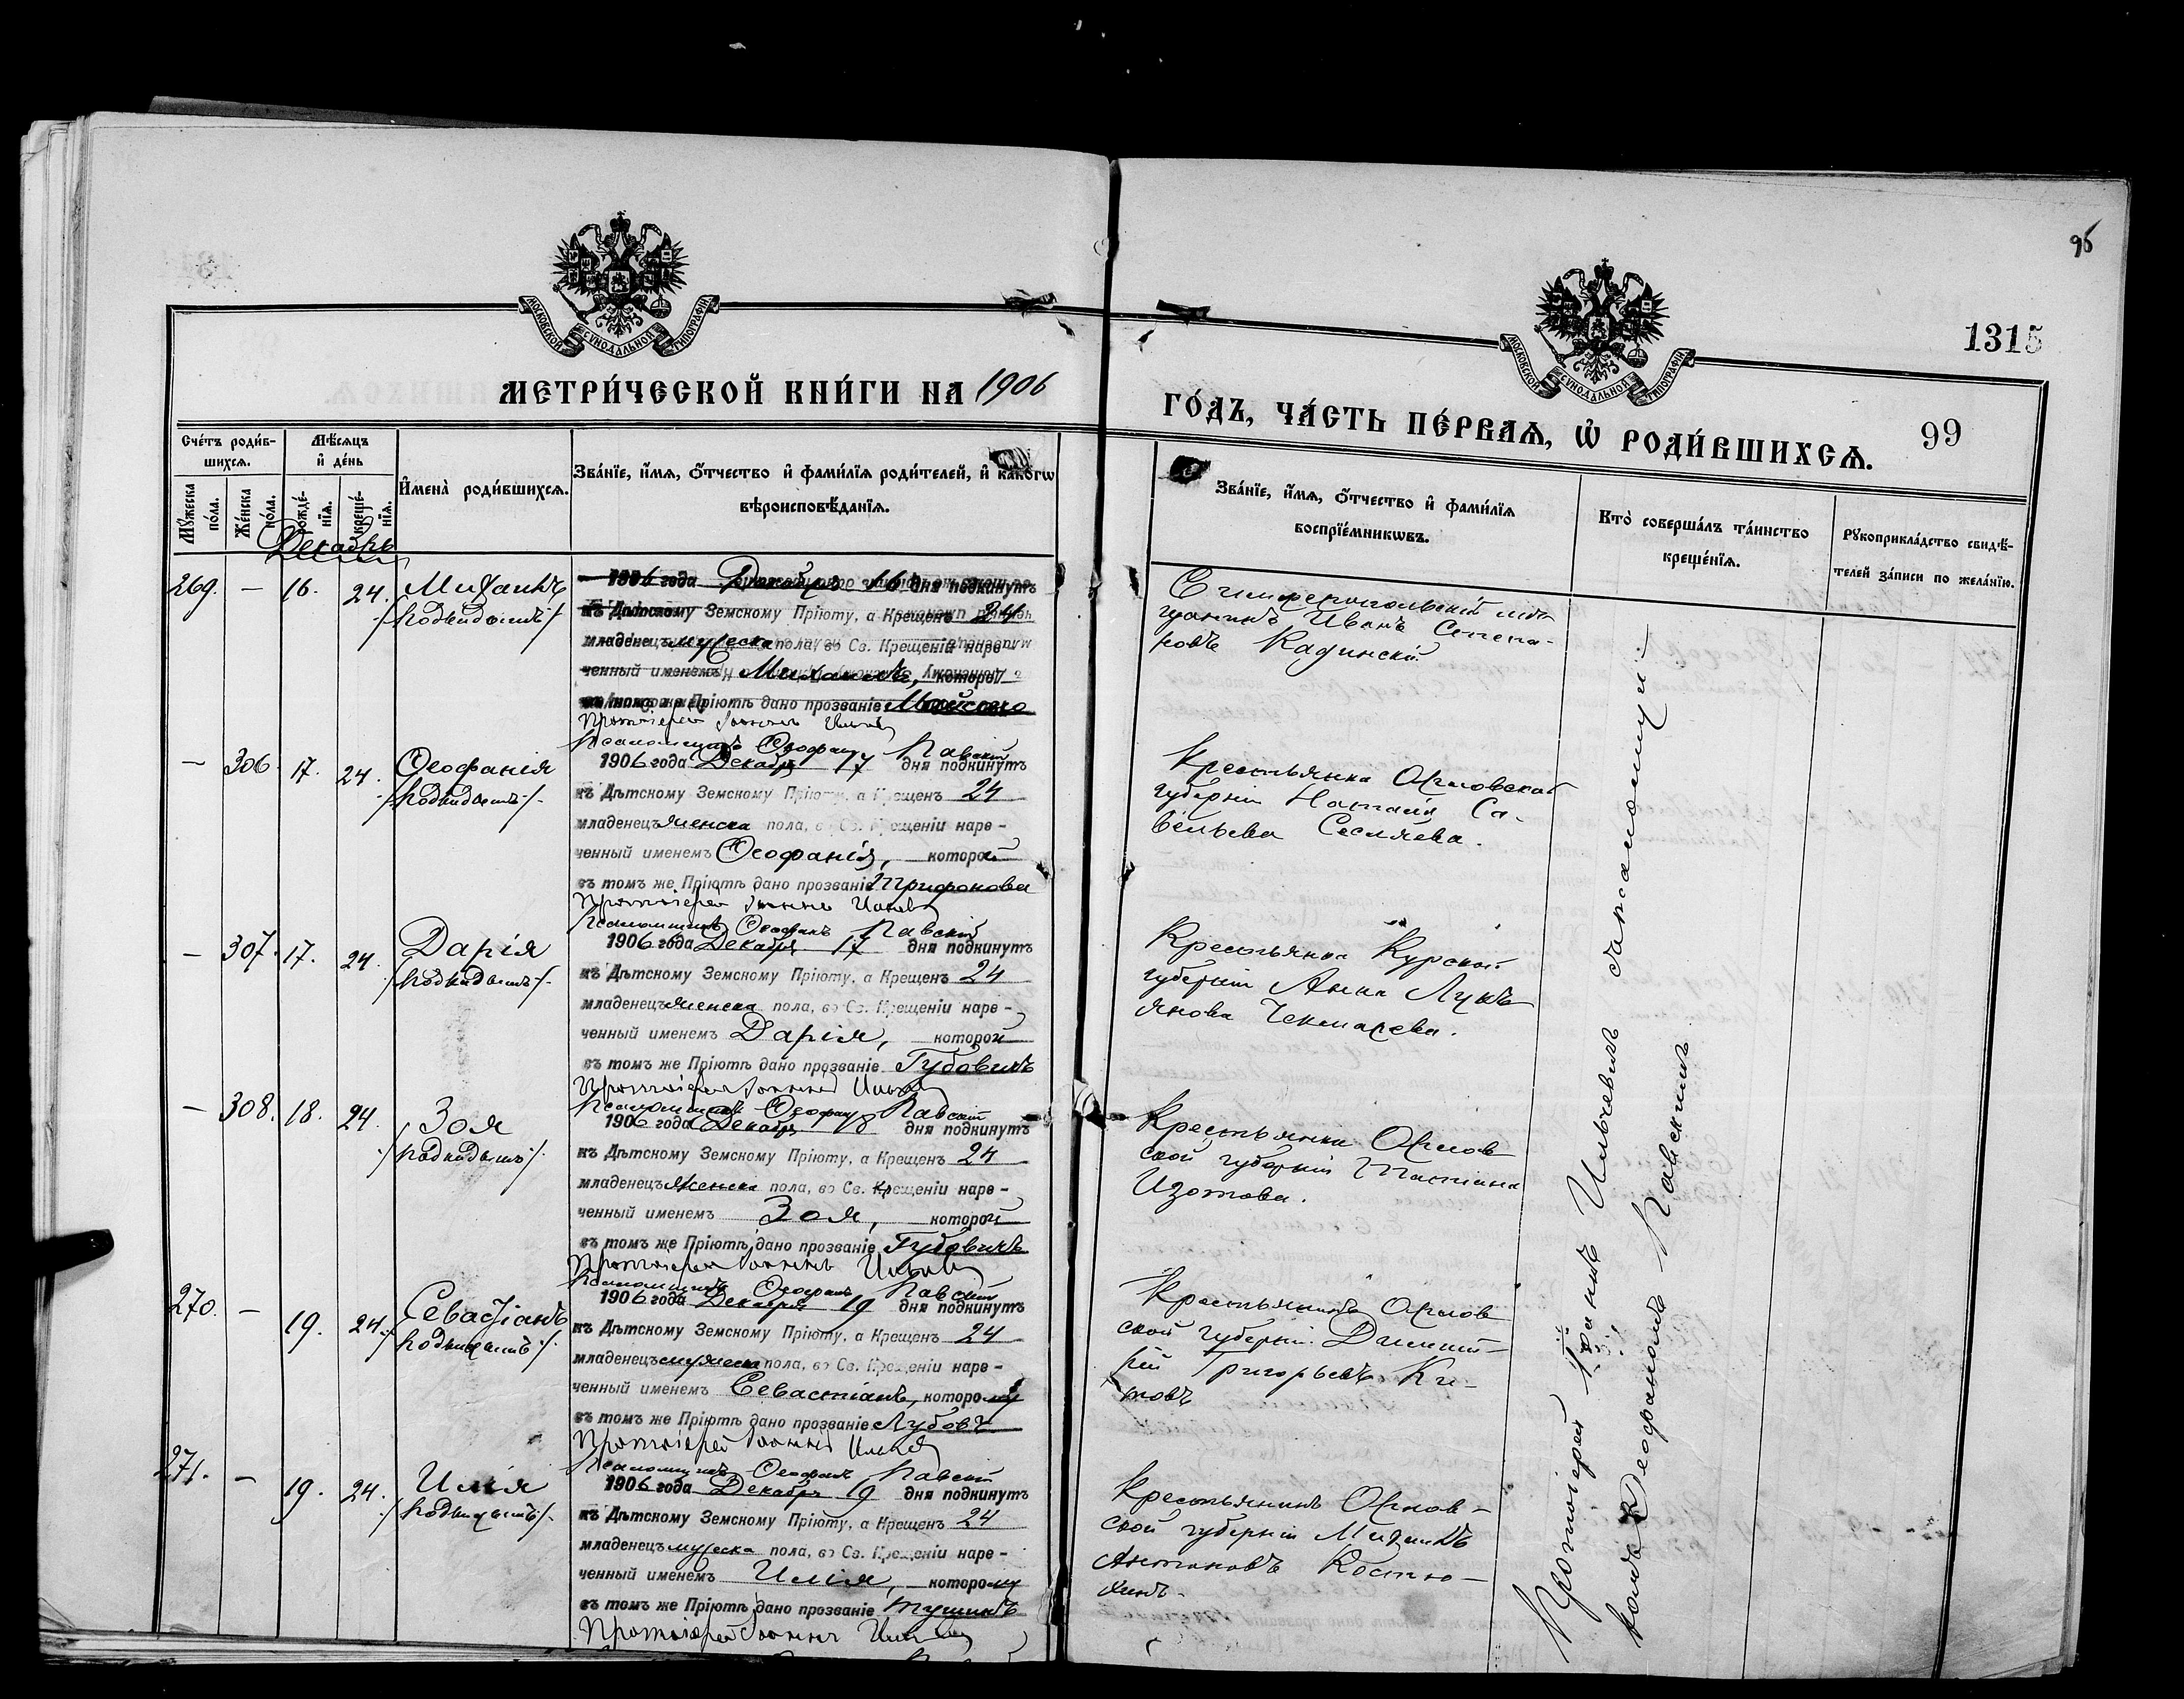 95
1315
МОСКОВСКОЙ СѴНОДАЛЬНОЙ ТИПОГРАФІИ
МОСКОВСКОЙ СѴНОДАЛЬНОЙ ТИПОГРАФІИ
МЕТРИ́ЧЕСКОЙ КНИ́ГИ НА 1906
ГО́ДЪ, ЧА́СТЬ ПЕ́РВАЯ, Ѡ҆ РОДИ́ВШИХСЯ.
99
Сче́тъ роди́в-
шихся.
Мꙋ́жеска по́ла.
Же́нска по́ла.
Мѣ́сяцъ
и҆ де́нь
рожде́-
нїя.
креще́-
нїя.
И҆мена̀ роди́вшихся.
Зва́нїе, и҆́мя, ѻ҆́тчество и҆ фами́лїя роди́телей, и҆ како́гѡ
вѣроисповѣ́данїя.
Зва́нїе, и҆́мя, ѻ҆́тчество и҆ фами́лїя
воспрїе́мникѡвъ.
Кто̀ соверша́лъ та́инство
креще́нїя.
Рꙋкоприкла́дство свидѣ́-
телей за́писи по жела́нїю.
Декабрь
269. — 16. 24. Михаилъ
/подкидышъ/
1906 года Декабря 16 дня подкинутъ
къ Дѣтскому Земскому Пріюту, а Крещенъ 24
младенецъ мужеска пола, во Св. Крещеніи наре-
ченный именемъ Михаилъ, которо
въ томъ же Пріютѣ дано прозваніе
Протоіерей Іоаннъ
Псаломщикъ Ѳеофанъ Павскій
Симферопольскій мѣ
щанинъ Иванъ Степа-
новъ Кадинскій
— 306. 17. 24. Ѳеофанія
/подкидышъ/.
1906 года Декабря 17 дня подкинутъ
къ Дѣтскому Земскому Пріюту, а Крещенъ 24
младенецъ женска пола, во Св. Крещеніи наре-
ченный именемъ Ѳеофанія, которой
въ томъ же Пріютѣ дано прозваніе Трифонова
Протоіерей Іоаннъ
Псаломщикъ Ѳеофанъ Павскій
Крестьянка Орловской
губерніи Наталія Са-
вельева Сесляева.
— 307. 17. 24. Дарія
/подкидышъ/.
1906 года Декабря 17 дня подкинутъ
къ Дѣтскому Земскому Пріюту, а Крещенъ 24
младенецъ женска пола, во Св. Крещеніи наре-
ченный именемъ Дарія, которой
въ томъ же Пріютѣ дано прозваніе Губовичъ
Протоіерей Іоаннъ
Псаломщикъ Ѳеофанъ Павскій
Крестьянка Курской
губерніи Анна Лукь
янова Чекмарева.
— 308. 18. 24. Зоя
/подкидышъ/.
1906 года Декабря 18 дня подкинутъ
къ Дѣтскому Земскому Пріюту, а Крещенъ 24
младенецъ женска пола, во Св. Крещеніи наре-
ченный именемъ Зоя, которой
въ томъ же Пріютѣ дано прозваніе Губовичъ
Протоіерей Іоаннъ
Псаломщикъ Ѳеофанъ Павскій
Крестьянка Орлов
ской губерніи Татіана
Изотова.
270. — 19. 24. Севастіанъ
/подкидышъ/.
1906 года Декабря 19 дня подкинутъ
къ Дѣтскому Земскому Пріюту, а Крещенъ 24
младенецъ мужеска пола, во Св. Крещеніи наре-
ченный именемъ Севастіанъ, которому
въ томъ же Пріютѣ дано прозваніе Лубовъ
Протоіерей Іоаннъ
Псаломщикъ Ѳеофанъ Павскій
Крестьянинъ Орлов
ской губерніи Димит-
рій Григорьевъ Ки-
товъ
271. — 19. 24. Илія
/подкидышъ/.
1906 года Декабря 19 дня подкинутъ
къ Дѣтскому Земскому Пріюту, а Крещенъ 24
младенецъ мужеска пола, во Св. Крещеніи наре-
ченный именемъ Илія, которому
въ томъ же Пріютѣ дано прозваніе Тушинъ
Протоіерей Іоаннъ
Крестьянинъ Орлов-
ской губерніи Михаилъ
Антоновъ Костю-
хинъ.
Протоіерей Іоаннъ Ильчевичъ
Ѳеофаномъ Павскимъ